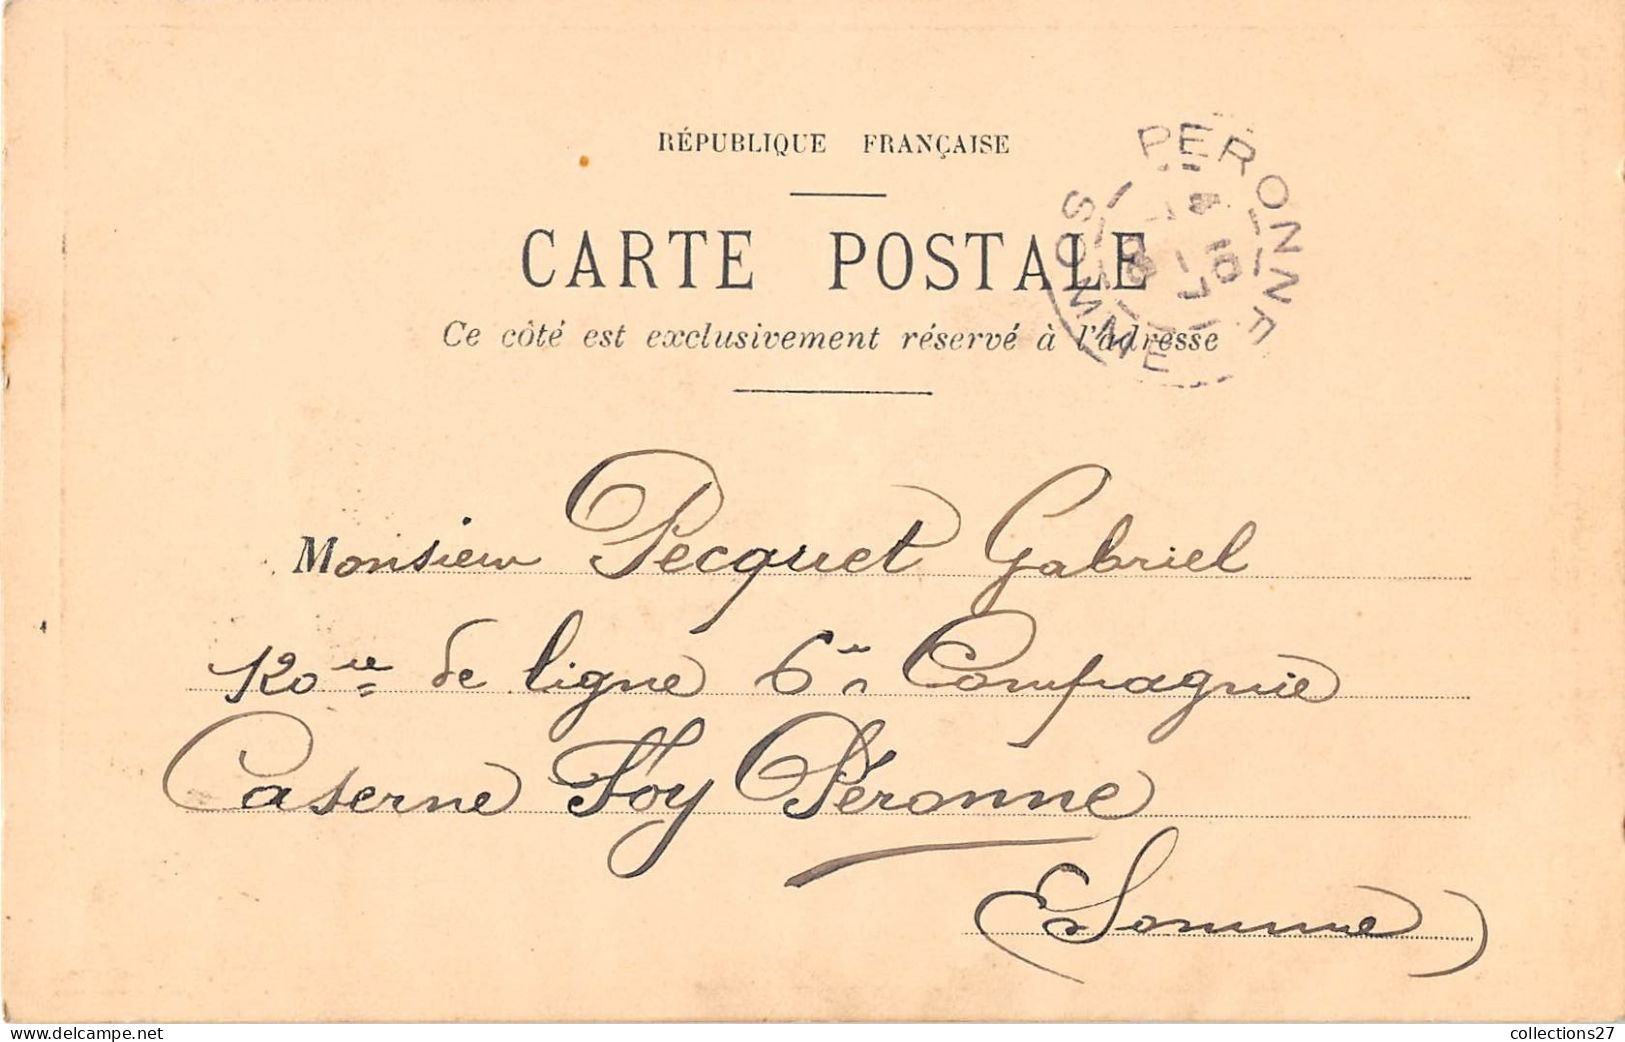 RÉPUBLIQUE FRANÇAISE
CARTE POSTALE
Ce côté est exclusivement réservé à l'adresse
PERONNE
SOMME
Monsieur Pecquet Gabriel
120me de ligne 6me Compagnie
Caserne Foy Péronne
(Somme)
www.delcampe.net
collections27